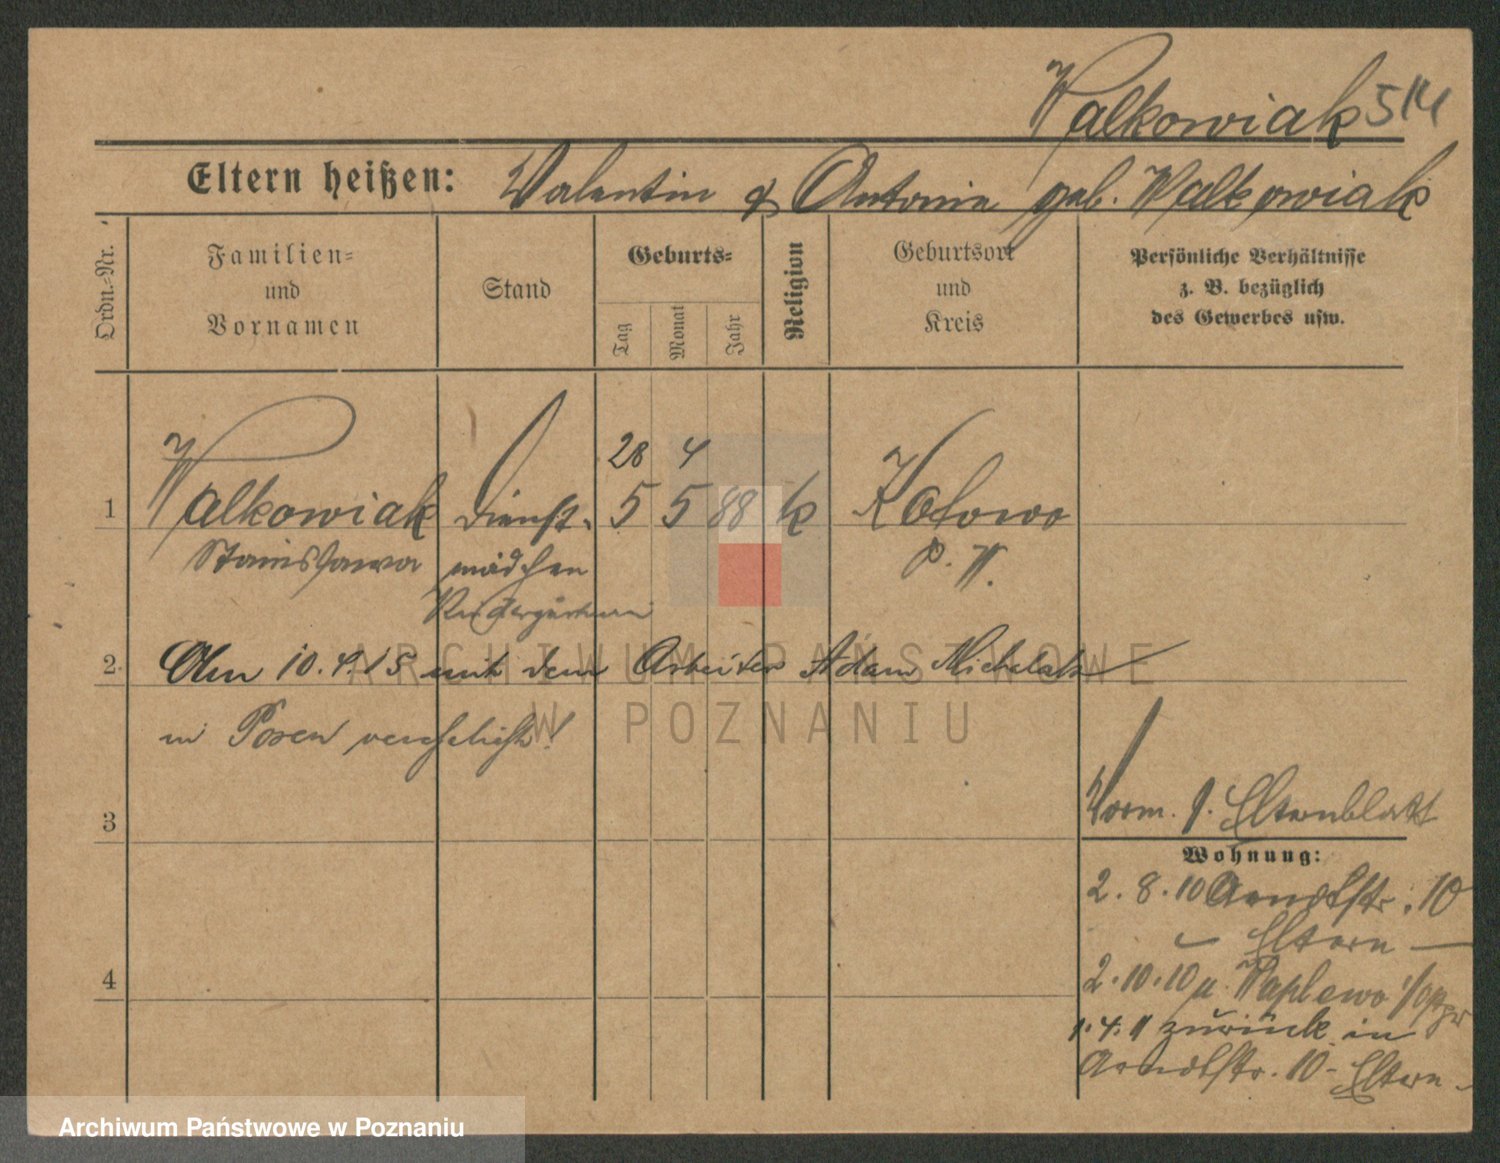 Walkowiak 514
Eltern heißen: Valentin & Antonie geb. Walkowiak
Ordn.-Nr.
Familien-
und
Vornamen
Stand
Geburts-
Tag
Monat
Jahr
Religion
Geburtsort
und
Kreis
Persönliche Verhältnisse
z. B. bezüglich
des Gewerbes usw.
28 4
1 Walkowiak Dienst- 5 5 88 k Kotowo
Stanisława mädchen P. W.
2. Am 10.4.15 mit dem Arbeiter Adam Michalak
in Posen verehelicht!
ARCHIWUM PAŃSTWOWE
W POZNANIU
3
Vorm. s. Elternblatt
Wohnung:
2.8.10 Arndtstr. 10
Eltern
4
2.10.10 n.
1.4.11 zurück in
Arndtstr. 10 - Eltern -
Archiwum Państwowe w Poznaniu